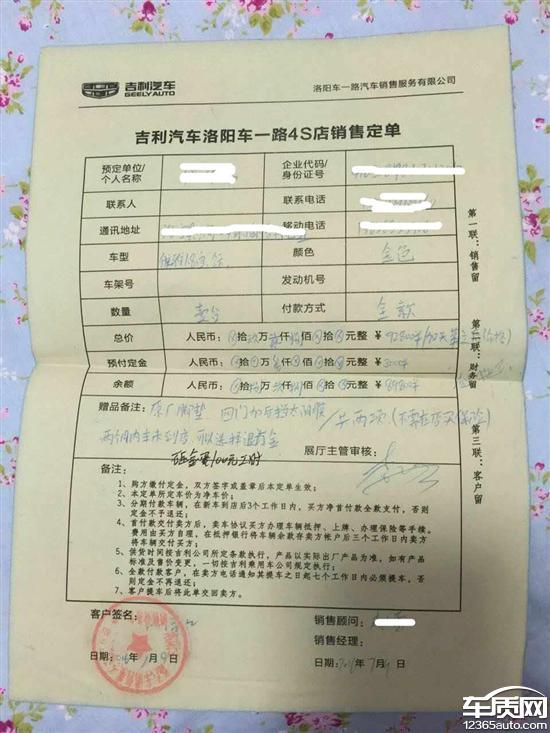 吉利汽车
GEELY AUTO
洛阳车一路汽车销售服务有限公司
吉利汽车洛阳车一路4S店销售定单
预定单位/
个人名称
企业代码/
身份证号
联系人
联系电话
通讯地址
移动电话
车型
颜色 金色
车架号
发动机号
数量 壹台
付款方式 全款
总价 人民币: 拾 万 仟 佰 拾 元整 ¥ 92800
预付定金 人民币: 拾 万 仟 佰 拾 元整 ¥ 3000
余额 人民币: 拾 万 仟 佰 拾 元整 ¥ 89800
赠品备注: 原厂脚垫 四门加后档太阳膜 / 共两项 (不需在店买保险)
两个月内车未到店,可以选择退定金
展厅主管审核:
备注:
1、购方缴付定金,双方签字或盖章后本定单生效;
2、本定单所定车价为净车价;
3、分期付款车辆,在新车到店后3个工作日内,买方净首付款全款支付,否则
定金不予退还;
4、首付款交付卖方后,卖车协议买方办理车辆抵押、上牌、办理保险等手续,
费用由买方自理,在抵押银行将车辆余款存卖方帐户后三个工作日内卖方
将车辆交付买方;
5、供货时间按吉利公司所定条款执行,产品以实际出厂产品为准,如有产品
标准及售价变更,一切按吉利乘用车公司规定执行;
6、全款付款客户,在卖方电话通知其提车之日起七个工作日内必须提车,否
则定金不再退还;
7、客户提车后将此单交回卖方。
客户签名:
销售顾问:
销售经理:
日期: 年 7月9日
日期: 年7月9日
第一联:销售留
第二联:财务留
第三联:客户留
车质网
12365auto.com